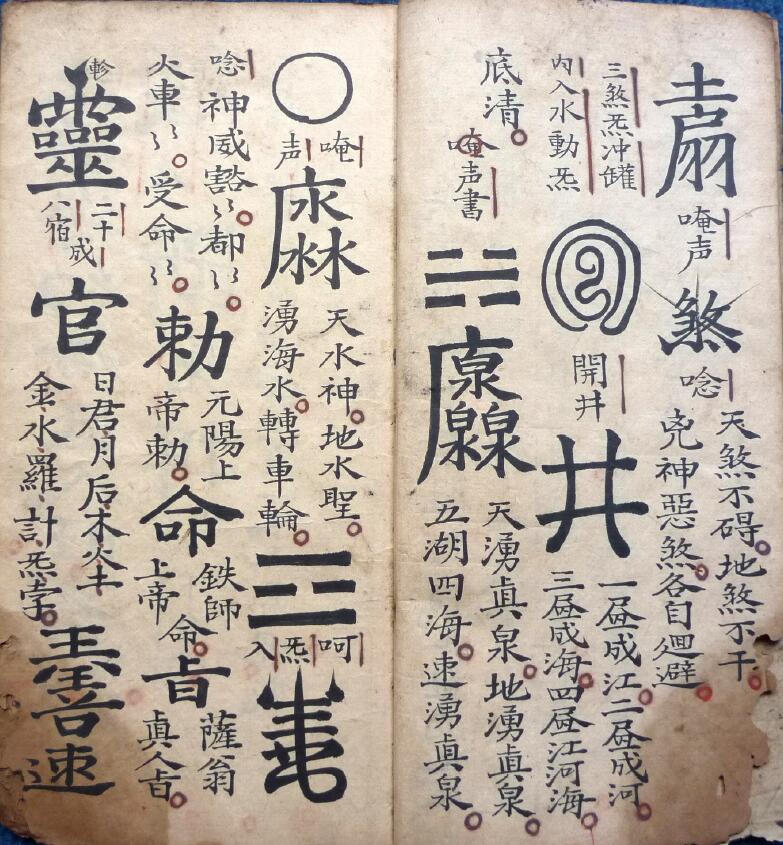 唵声
煞
唸
天煞不碍地煞不干
兇神惡煞各自廻避
三煞炁冲罐
內入水動炁
開井
井
一昼成江二昼成河
三昼成海四昼江河海
底清
唵声書
天湧眞泉地湧眞泉
五湖四海速湧眞泉
唵
声
天水神地水聖
湧海水轉車輪
呵
炁
入
唸
神威豁〻都〻
火車〻受命〻
勅
元陽上
帝勅
命
鉄師
上帝
命
旨
薩翁
眞人旨
軫
靈
二十
八宿
成
官
日君月后木火土
金水羅計炁孛
速